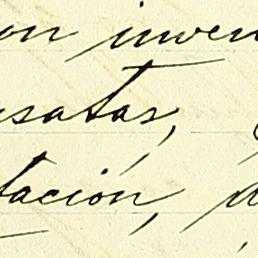 on inven
usatas,
tación, d